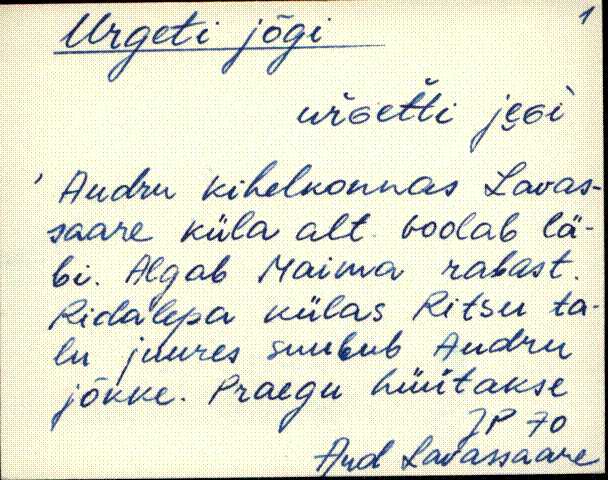 Urgeti jõgi
1
ur̆Getti je̮Gi
Audru kihelkonnas Lavas-
saare küla alt voolab lä-
bi. Algab Maima rabast.
Ridalepa külas Ritsu ta-
lu juures suubub Audru
jõkke. Praegu hüütakse
JP 70
Aud Lavassaare